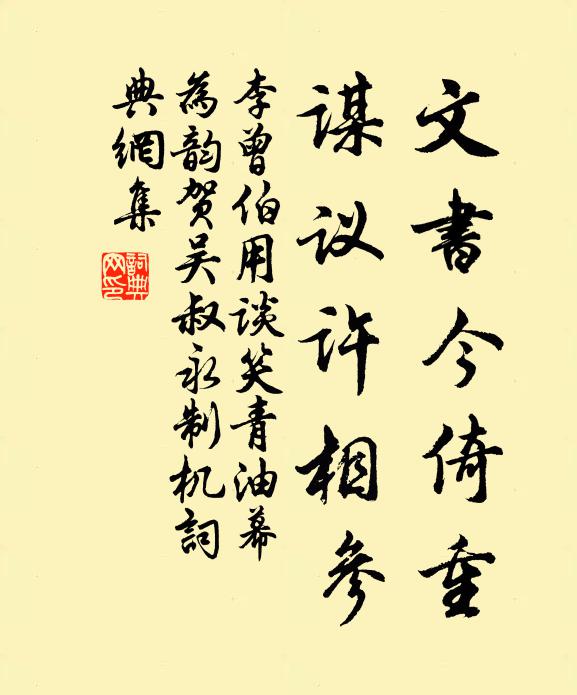 文書今倚重
谋议许相參
李曾伯用談笑青油幕
為韵贺吴叔永制机詞
典網集
詞典網印